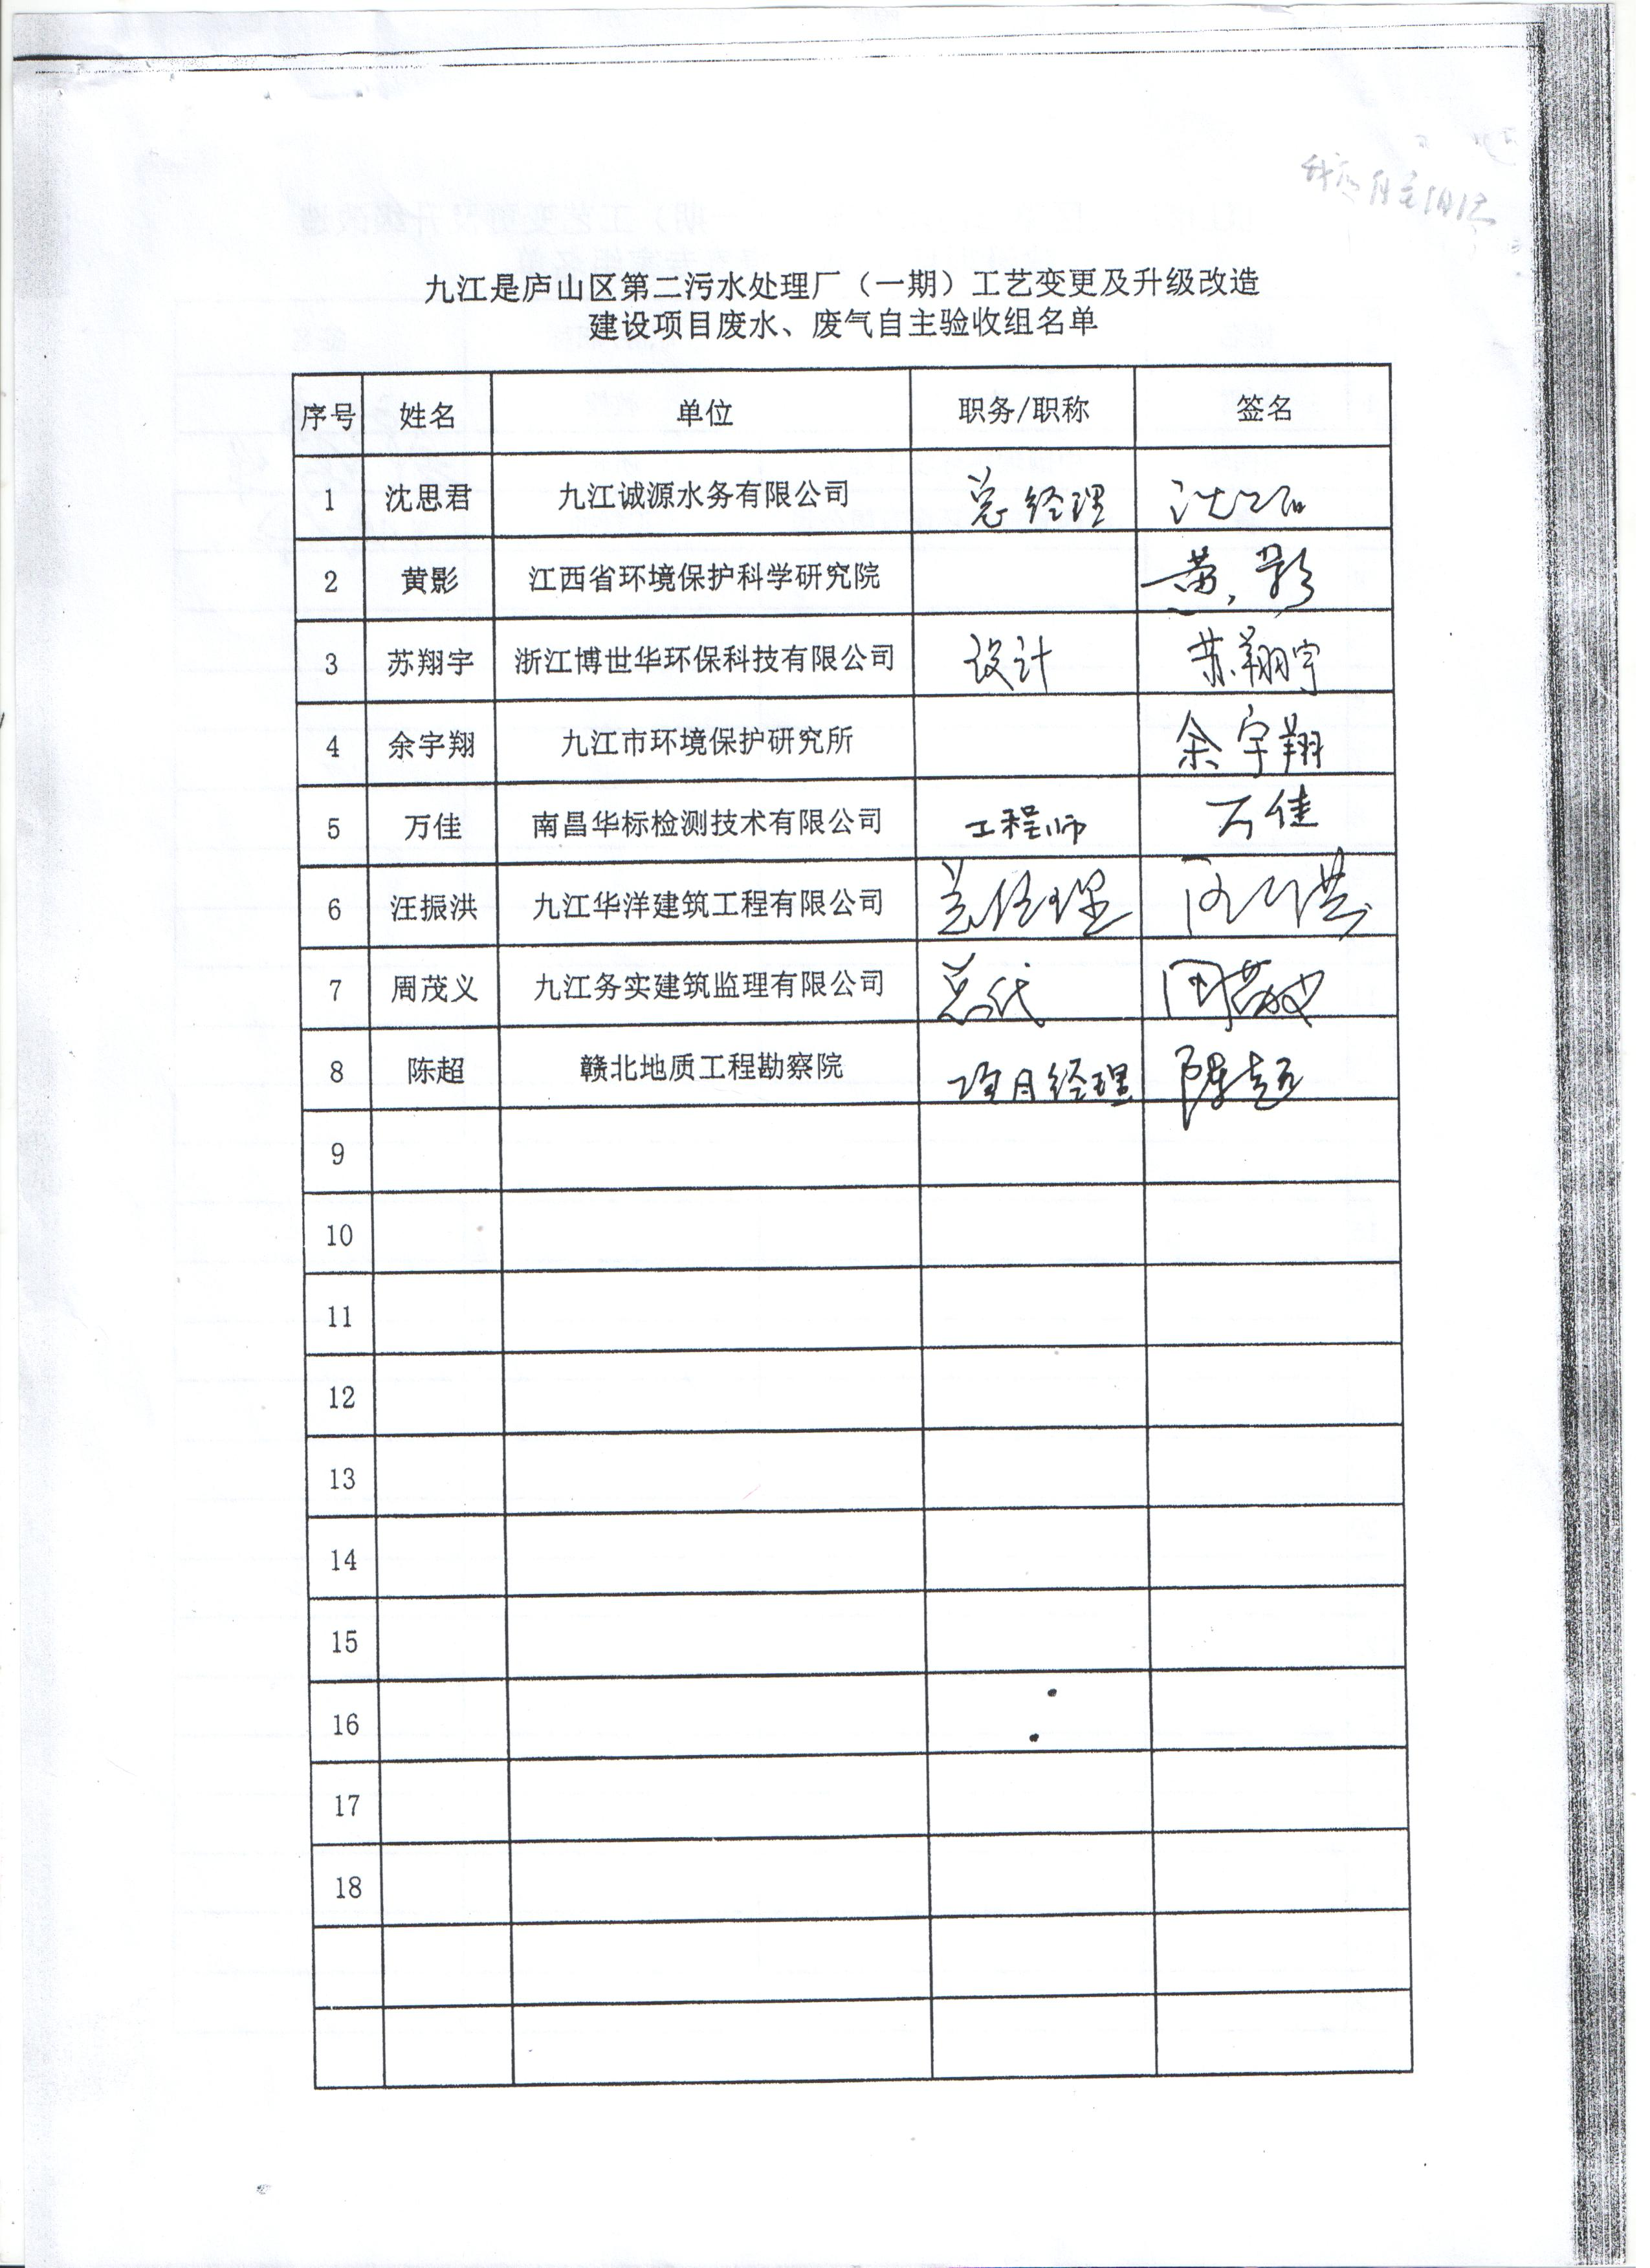 九江是庐山区第二污水处理厂（一期）工艺变更及升级改造
建设项目废水、废气自主验收组名单
序号 姓名 单位 职务/职称 签名
1 沈思君 九江诚源水务有限公司 总经理
2 黄影 江西省环境保护科学研究院 黄影
3 苏翔宇 浙江博世华环保科技有限公司 设计 苏翔宇
4 余宇翔 九江市环境保护研究所 余宇翔
5 万佳 南昌华标检测技术有限公司 工程师 万佳
6 汪振洪 九江华洋建筑工程有限公司 总经理
7 周茂义 九江务实建筑监理有限公司 总代 周茂义
8 陈超 赣北地质工程勘察院 项目经理 陈超
9
10
11
12
13
14
15
16
17
18